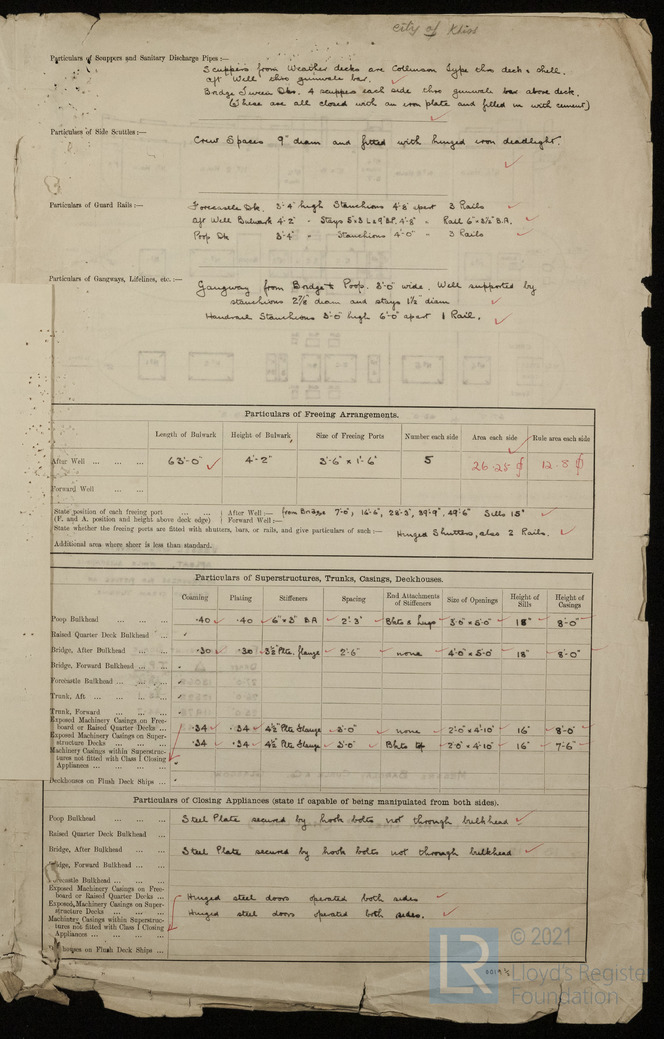 City of
Particulars of Scuppers and Sanitary Discharge Pipes :—
Scuppers from Weather decks are Collinson type thro deck & shell.
aft Well thro gunwale bar.
Bridge Tween Dks. 4 scuppers each side thro gunwale bar above deck.
(These are all closed with an iron plate and filled in with cement)
Particulars of Side Scuttles :—
Crew Spaces 9" diam and fitted with hinged iron deadlight.
Particulars of Guard Rails :—
Forecastle Dk. 3'-4" high Stanchions 4'-8" apart 3 Rails
Aft Well Bulwark 4'-2" " Stays 4'-8" " Rail B.A.
Poop Dk 3'-4" " Stanchions 4'-0" " 3 Rails
Particulars of Gangways, Lifelines, etc. :—
Gangway from Bridge & Poop. 3'-0" wide. Well supported by
stanchions 2⅞" diam and stays 1½" diam
Handrail Stanchions 3'-0" high 6'-0" apart 1 Rail.
Particulars of Freeing Arrangements.
Length of Bulwark Height of Bulwark Size of Freeing Ports Number each side Area each side Rule area each side
After Well ... ... ... 63'-0" 4'-2" 3'-6" x 1'-6" 5 26.25 12.8
Forward Well ... ...
State position of each freeing port ... ... After Well :— from Bridge 7'-0", 16'-6", 28'-3", 39'-9", 49'-6" Sills 15"
(F. and A. position and height above deck edge) Forward Well :—
State whether the freeing ports are fitted with shutters, bars, or rails, and give particulars of such :— Hinged Shutters, also 2 Rails.
Additional area where sheer is less than standard.
Particulars of Superstructures, Trunks, Casings, Deckhouses.
Coaming Plating Stiffeners Spacing End Attachments of Stiffeners Size of Openings Height of Sills Height of Casings
Poop Bulkhead ... ... ... .40 .40 6" x 3" B.A 2'-3" Bkts & Lugs 3'-0" x 5'-0" 18" 8'-0"
Raised Quarter Deck Bulkhead ...
Bridge, After Bulkhead ... ... .30 .30 3½" Plte. flange 2'-6" none 4'-0" x 5'-0" 18" 8'-0"
Bridge, Forward Bulkhead ... ...
Forecastle Bulkhead ... ... ...
Trunk, Aft ... ... ... ...
Trunk, Forward ... ... ...
Exposed Machinery Casings on Free-
board or Raised Quarter Decks ... .34 .34 4½" Plte flange 3'-0" none 2'-0" x 4'-10" 16" 8'-0"
Exposed Machinery Casings on Super-
structure Decks ... ... ... .34 .34 4½" Plte flange 3'-0" Bkts 2'-0" x 4'-10" 16" 7'-6"
Machinery Casings within Superstruc-
tures not fitted with Class I Closing
Appliances ... ... ... ...
Deckhouses on Flush Deck Ships ...
Particulars of Closing Appliances (state if capable of being manipulated from both sides).
Poop Bulkhead ... ... ... Steel Plate secured by hook bolts not through bulkhead
Raised Quarter Deck Bulkhead ...
Bridge, After Bulkhead ... ... Steel Plate secured by hook bolts not through bulkhead
Bridge, Forward Bulkhead ... ...
Forecastle Bulkhead ... ... ...
Exposed Machinery Casings on Free-
board or Raised Quarter Decks ... Hinged steel doors operated both sides
Exposed Machinery Casings on Super-
structure Decks ... ... ... Hinged steel doors operated both sides.
Machinery Casings within Superstruc-
tures not fitted with Class I Closing
Appliances ... ... ... ...
houses on Flush Deck Ships ...
LR © 2021
Lloyd's Register
Foundation